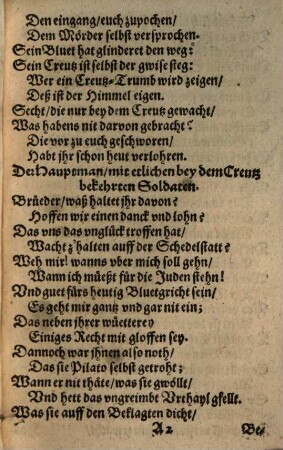 Den eingang/euch zupochen/
Dem Mörder selbst versprochen.
Sein Bluet hat glinderet den weg:
Sein Creutz ist selbst der gwise steg:
Wer ein Creutz-Trumb wird zeigen/
Deß ist der Himmel eigen.
Secht/die nur bey dem Creutz gewacht/
Was habens nit darvon gebracht?
Die vor zu euch geschworen/
Habt jhr schon heut verlohren.
Der Hauptman/mit etlichen bey dem Creutz
bekehrten Soldaten.
Brüeder/waß haltet jhr davon?
Hoffen wir einen danck vnd lohn?
Das vns das vnglück troffen hat/
Wacht z'halten auff der Schedelstatt?
Weh mir! wanns vber mich soll gehn/
Wann ich müeßt für die Juden stehn!
Vnd guet fürs heutig Bluetgricht sein/
Es geht mir gantz vnd gar nit ein;
Das neben jhrer wüetterey
Einiges Recht mit gloffen sey.
Dannoch war jhnen also noth/
Das sie Pilato selbst getroht;
Wann er nit thäte/was sie gwöllt/
Vnd hett das vngreimbt Vrthayl gfellt.
Was sie auff den Beklagten dicht/
A2 Be-